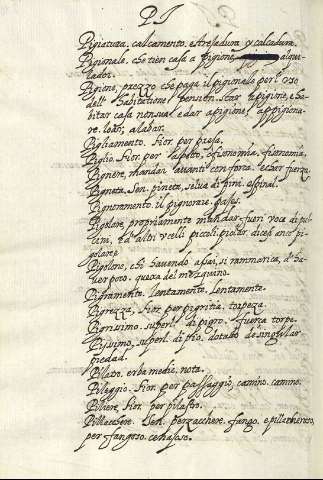 PI
Pigiatura. calcamento. estresadura y calcadura.
Pigionale. che tien casa a pigione, alqui-
lador.
Pigione, prezzo che paga il pigionale per l'uso
dell' habitatione. pension. star a pigione, ha-
bitar casa ad apigione. appigiona-
re. loar, alabar.
Pigliamento. Fior. per presa.
Piglio. Fior. per l'aspetto, e fisonomia, fisonomia.
Pignere, mandar avanti con forza. echar fuerza.
Pigneta. Sen. pineta, selva di pini.
Pignoramento. il pignorare.
Pigolare, propriamente mandar fuori voce di pul-
cini, et d'altri ucelli piccoli. piolar. dicesi anco pi-
golare.
Pigolone, chi havendo assai, si rammarica, d'ha-
ver poco. quexa del mezquino.
Pigramente. Lentamente. Lentamente.
Pigrezza, Fior. per pigritia, torpeza.
Pigrissimo. superl. di pigro,
Piissimo, superl. di Pio. dotado de singular
piedad.
Pilatro. erba medic. nota.
Pileggio. Fior. per passaggio, camino. camino.
Piliere, Fior. per pilastro.
Pillacchere. Sen. per zacchere. fango. e pillacheroso,
per fangoso.